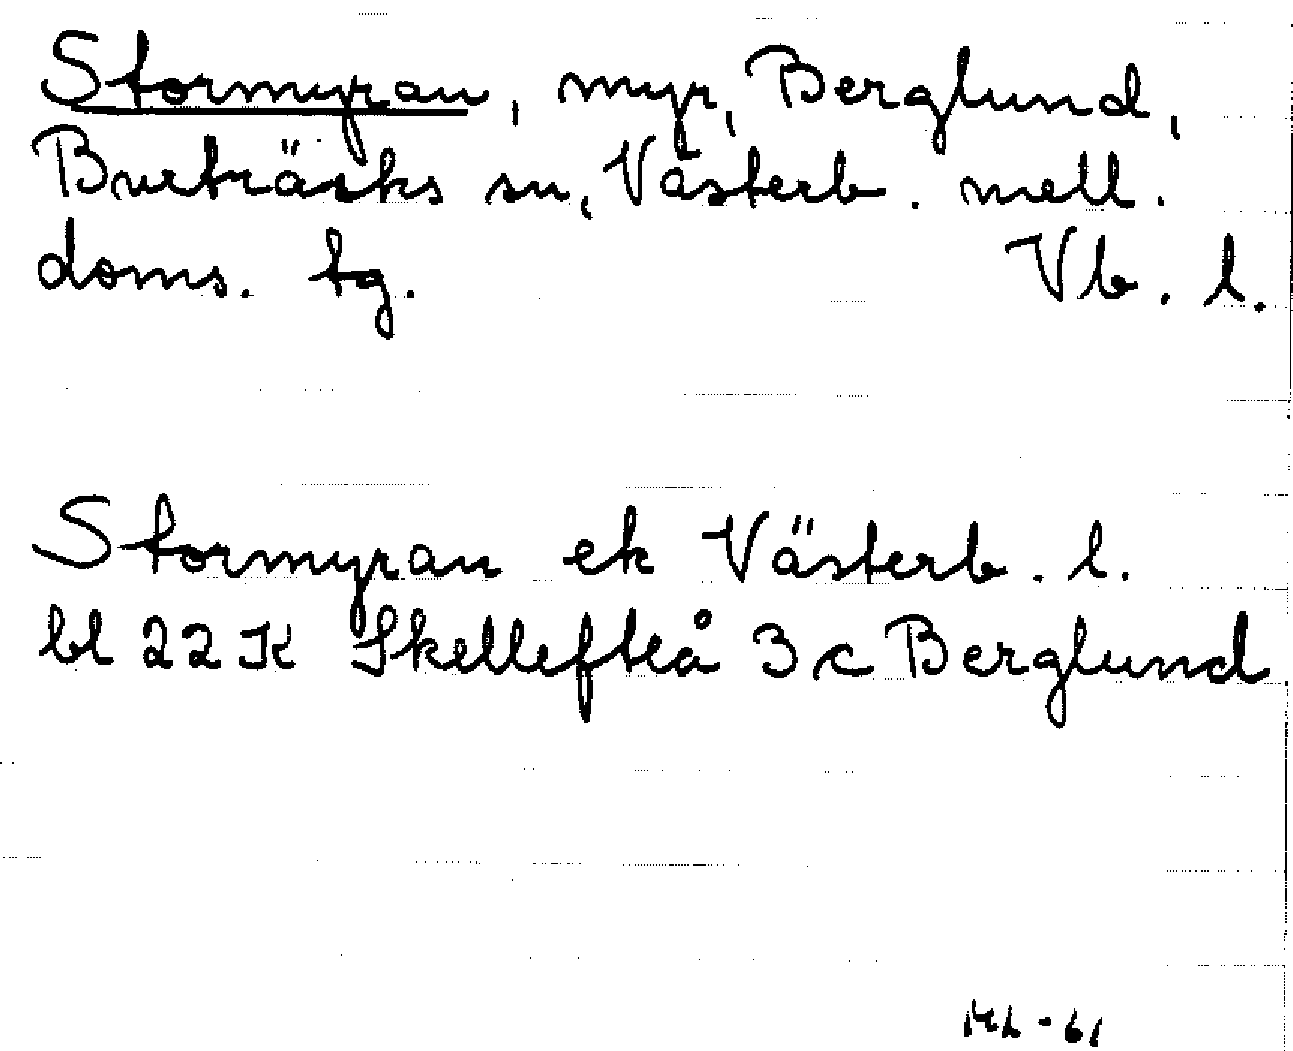 Stormyran, myr, Berglund,
Burträsks sn, Västerb. mell.
doms. tg. Vb. l.
Stormyran ek Västerb. l.
bl 22 K Skellefteå 3 c Berglund
ML - 61